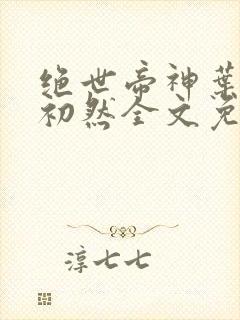 绝世帝神葉
初然全文免
淳七七